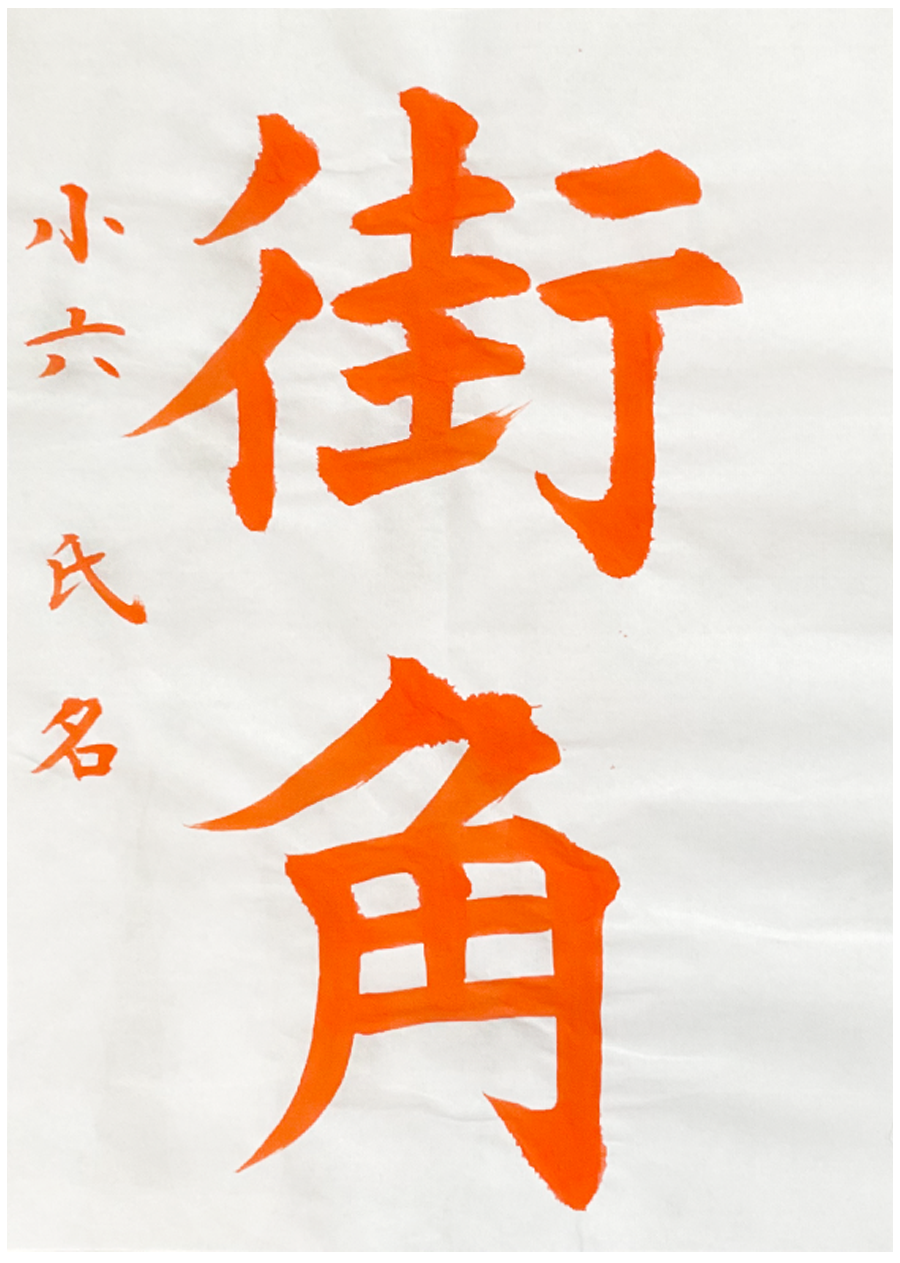 街角
小六 氏名